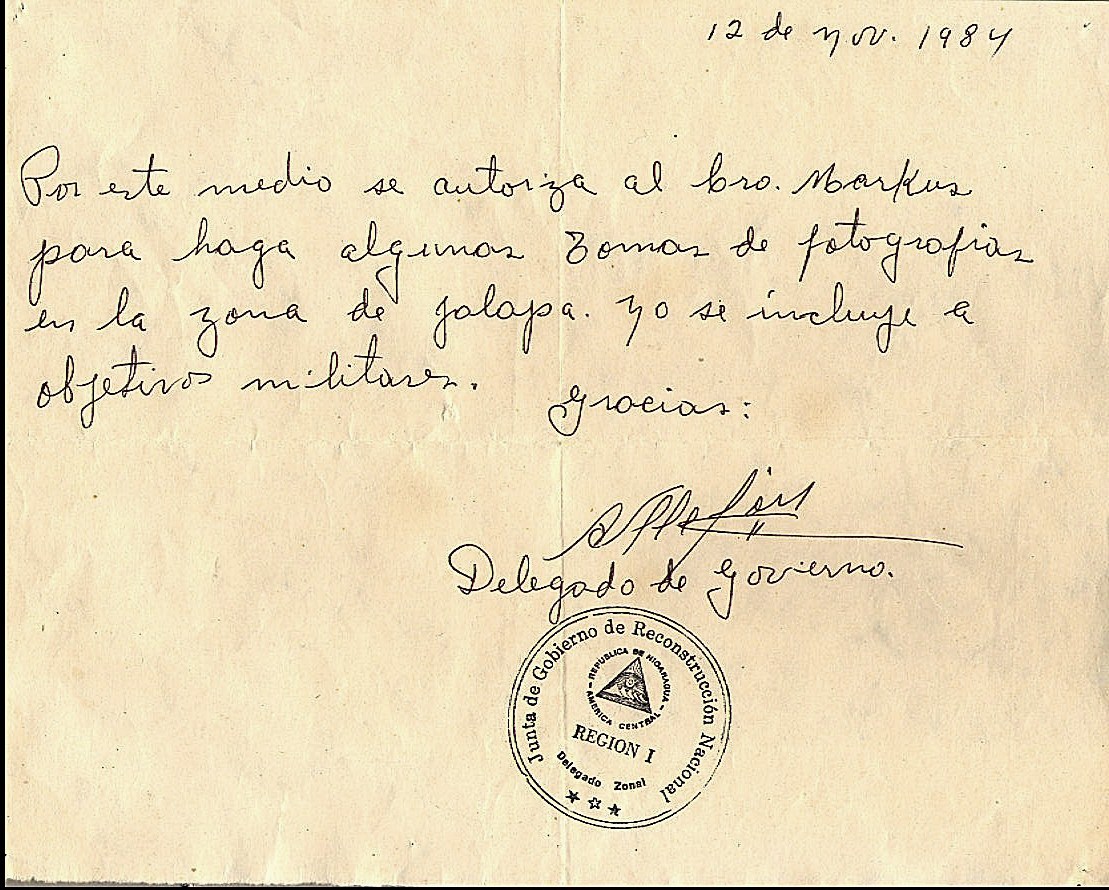 12 de nov. 1984
Por este medio se autoriza al bro. Markus
para haga algunas tomas de fotografias
en la zona de jalapa. no se incluye a
objetivos militares.
Gracias:
Delegado de Govierno.
Junta de Gobierno de Reconstrucción Nacional
REPUBLICA DE NICARAGUA
AMERICA CENTRAL
REGION I
Delegado Zonal